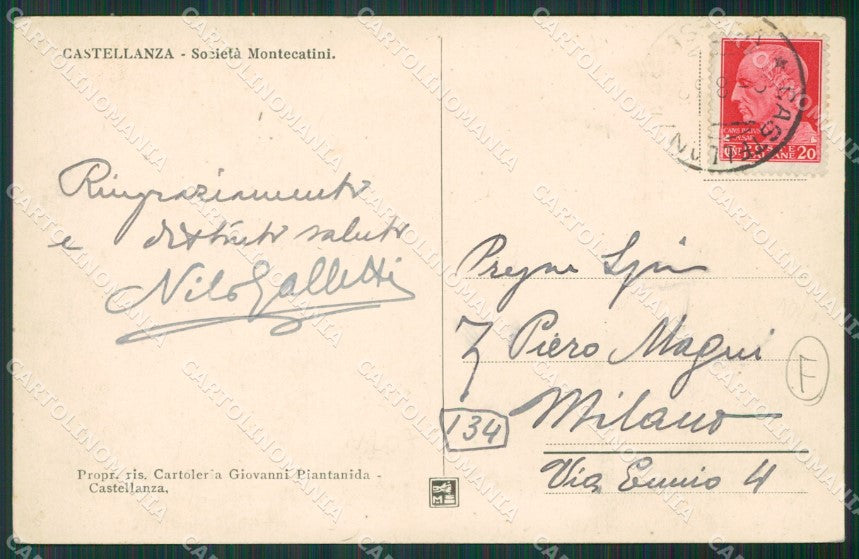 CASTELLANZA - Società Montecatini.
Ringraziamento
e distinto saluto
Nilo Galletti
Propr. ris. Cartoleria Giovanni Piantanida -
Castellanza.
20
Piero Magni
Milano
Via Ennio 4
134
F
CARTOLINOMANIA